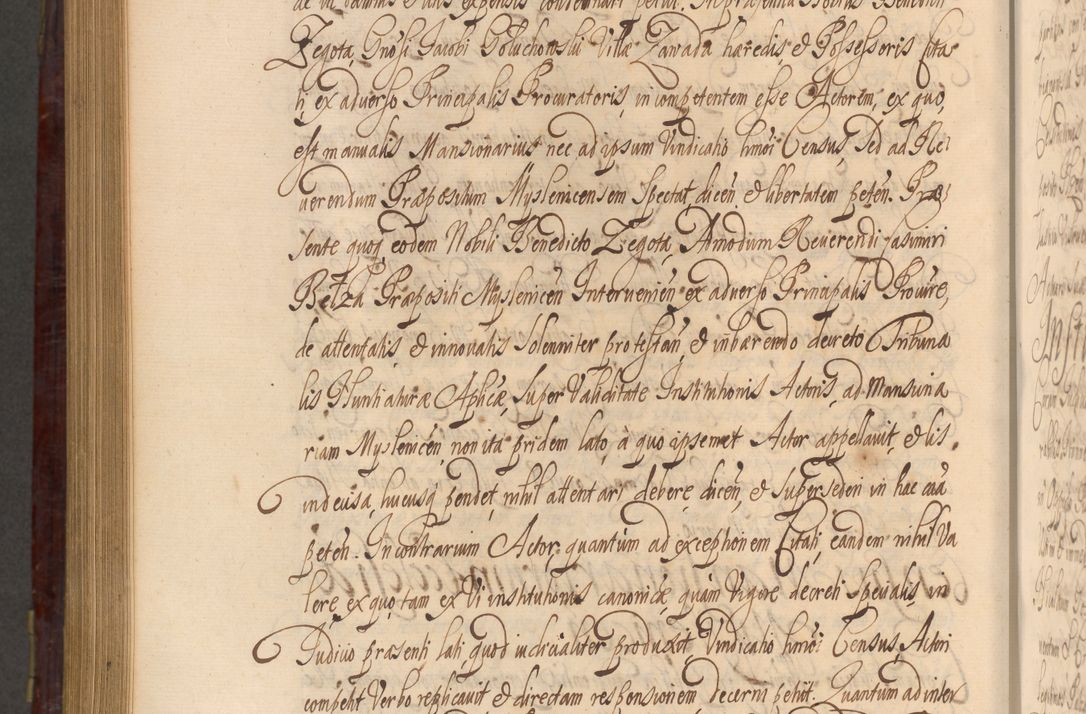 de in damnis et litis expensis condemnari petiit. In praesentia Nobilis Benedicti
Zegota, Gnosi Jacobi Goluchowski Villae Zawada haeredis, et Possessoris Cita-
ti ex adverso Principalis Procuratoris, incompetentem esse Actorem, ex quo,
est manualis Mansionarius nec ad ipsum Vindicatio hmoi Census, Sed ad Re-
verendum Praepositum Myslenicensem Spectat, dicen. et libertatem peten. Prae-
sente quoq. eodem Nobili Benedicto Zegota, Admodum Reverendi Casimiri
Betza Praepositi Myslenicen Intervenien, ex adverso Principalis Procure,
de attentatis et innovatis Solenniter protestan, et inhaerendo decreto Tribuna
lis Nuntiaturae Aplicae, super Validitate Institutionis Actoris, ad Mansiona
riam Myslenicen, non ita pridem lato, à quo ipsemet Actor appellavit, et lis,
indecisa, hucusq. pendet, nihil attentari debere, dicen, et Supersederi in hac caa
peten. In contrarium Actor, quantum ad exceptionem Citati, eandem nihil Va
lere, ex quo, tam ex Vi institutionis canonicae, quàm Vigore decreti Specialis, in
Judicio praesenti lati, quod iudicialiter produxit, Vindicatio hmoi Census, Actori
competit Verbo replicavit et directam responsionem decerni petiit. Quantum ad inter